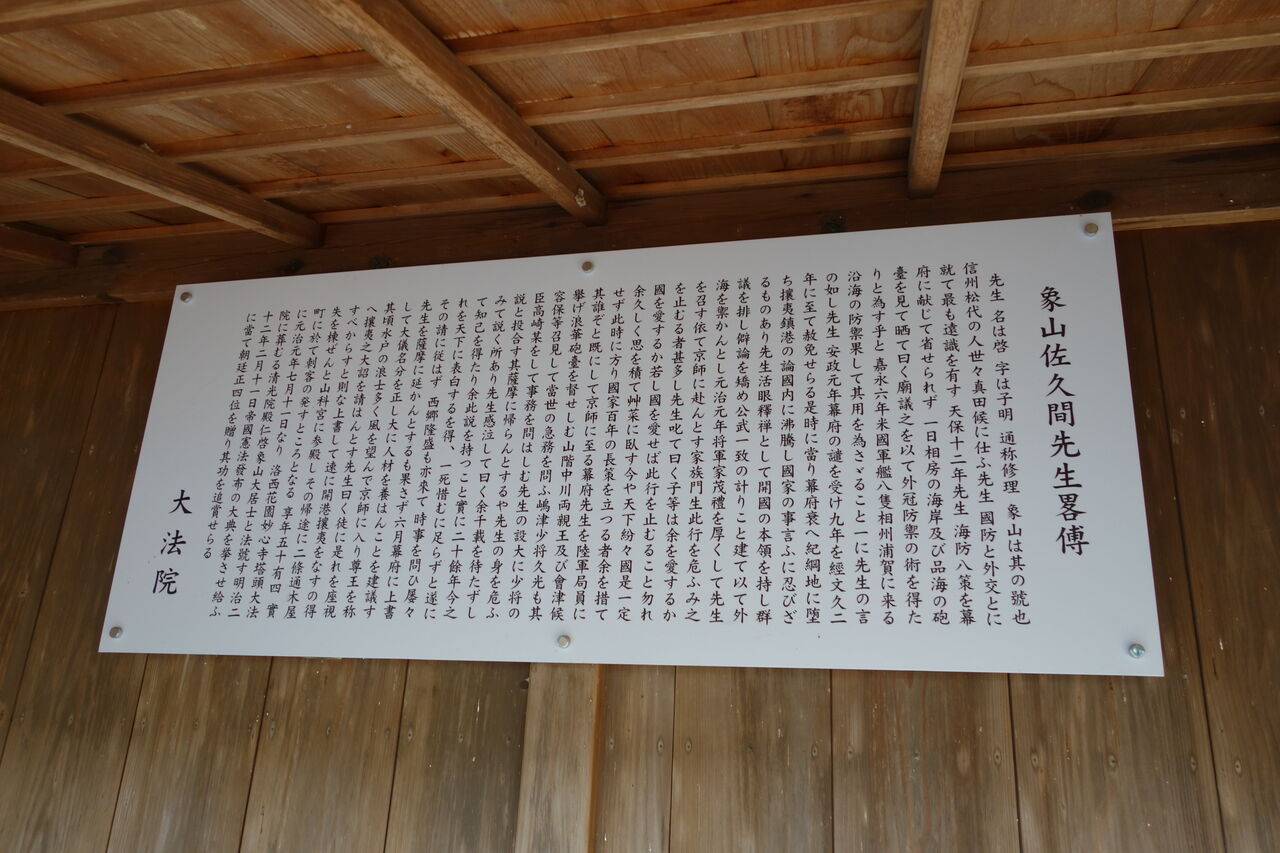 象山佐久間先生畧傳
先生 名は啓 字は子明 通称修理 象山は其の號也
信州松代の人世々真田候に仕ふ先生 國防と外交とに
就て最も遠識を有す 天保十二年先生 海防八策を幕
府に献じて省せられず 一日相房の海岸及び品海の砲
臺を見て晒て曰く廟議之を以て外冠防禦の術を得た
りと為す乎と嘉永六年米國軍艦八隻相州浦賀に来る
沿海の防禦果して其用を為さゞること一に先生の言
の如し先生 安政元年幕府の譴を受け九年を經文久二
年に至て赦免せらる是時に當り幕府衰へ紀綱地に堕
ち攘夷鎮港の論國内に沸騰し國家の事言ふに忍びざ
るものあり先生活眼釋禅として開國の本領を持し群
議を排し僻論を矯め公武一致の計りこと建て以て外
海を禦かんとし元治元年将軍家茂禮を厚くして先生
を召す依て京師に赴んとす家族門生此行を危ふみ之
を止むる者甚多し先生叱て曰く子等は余を愛するか
國を愛するか若し國を愛せば此行を止むること勿れ
余久しく思を積て艸菜に臥す今や天下紛々國是一定
せず此時に方り國家百年の長策を立つる者余を措て
其誰ぞと既にして京師に至る幕府先生を陸軍局員に
擧げ浪華砲臺を督せしむ山階中川両親王及び會津候
容保等召見して當世の急務を問ふ嶋津少将久光も其
臣高崎某をして事務を問はしむ先生の設大に少将の
説と投合す其薩摩に帰らんとするや先生の身を危ふ
みて説く所あり先生感泣して曰く余千載を待たずし
て知己を得たり余此説を持つこと實に二十餘年今之
れを天下に表白するを得、一死惜むに足らずと遂に
その請に従はず 西郷隆盛も亦來て 時事を問ひ屡々
先生を薩摩に延かんとするも果さず六月幕府に上書
して大儀名分を正し大に人材を養はんことを建議す
其頃水戸の浪士多く風を望んで京師に入り尊王を称
へ攘夷之大詔を請はんとす先生曰く徒に是れを座視
すべからすと則な上書して速に開港攘夷をなすの得
失を棟ぜんと山科宮に参殿し その帰途に二條通木屋
町に於て刺客の発すところとなる 享年五十有四 實
に元治元年七月十一日なり 洛西花園妙心寺塔頭大法
院に葬むる清光院殿仁啓象山大居士と法號す明治二
十二年二月十一日帝國憲法發布の大典を挙させ給ふ
に當て朝廷正四位を贈り其功を追賞せらる
大法院